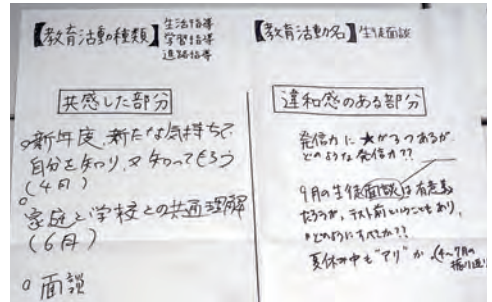 【教育活動種類】生活指導
学習指導
進路指導
【教育活動名】生徒面談
共感した部分
○新年度、新たな気持ちで
自分を知り、又知ってもらう
(4月)
○家庭と学校との共通理解
(6月)
○面談
違和感のある部分
発信力に★が3つあるが
どのような発信力??
9月の生徒面談は有意義
だろうが、テスト前ということもあり、
どのようにすべきか??
夏休み中も"アリ"か(4~7月の
振り返り